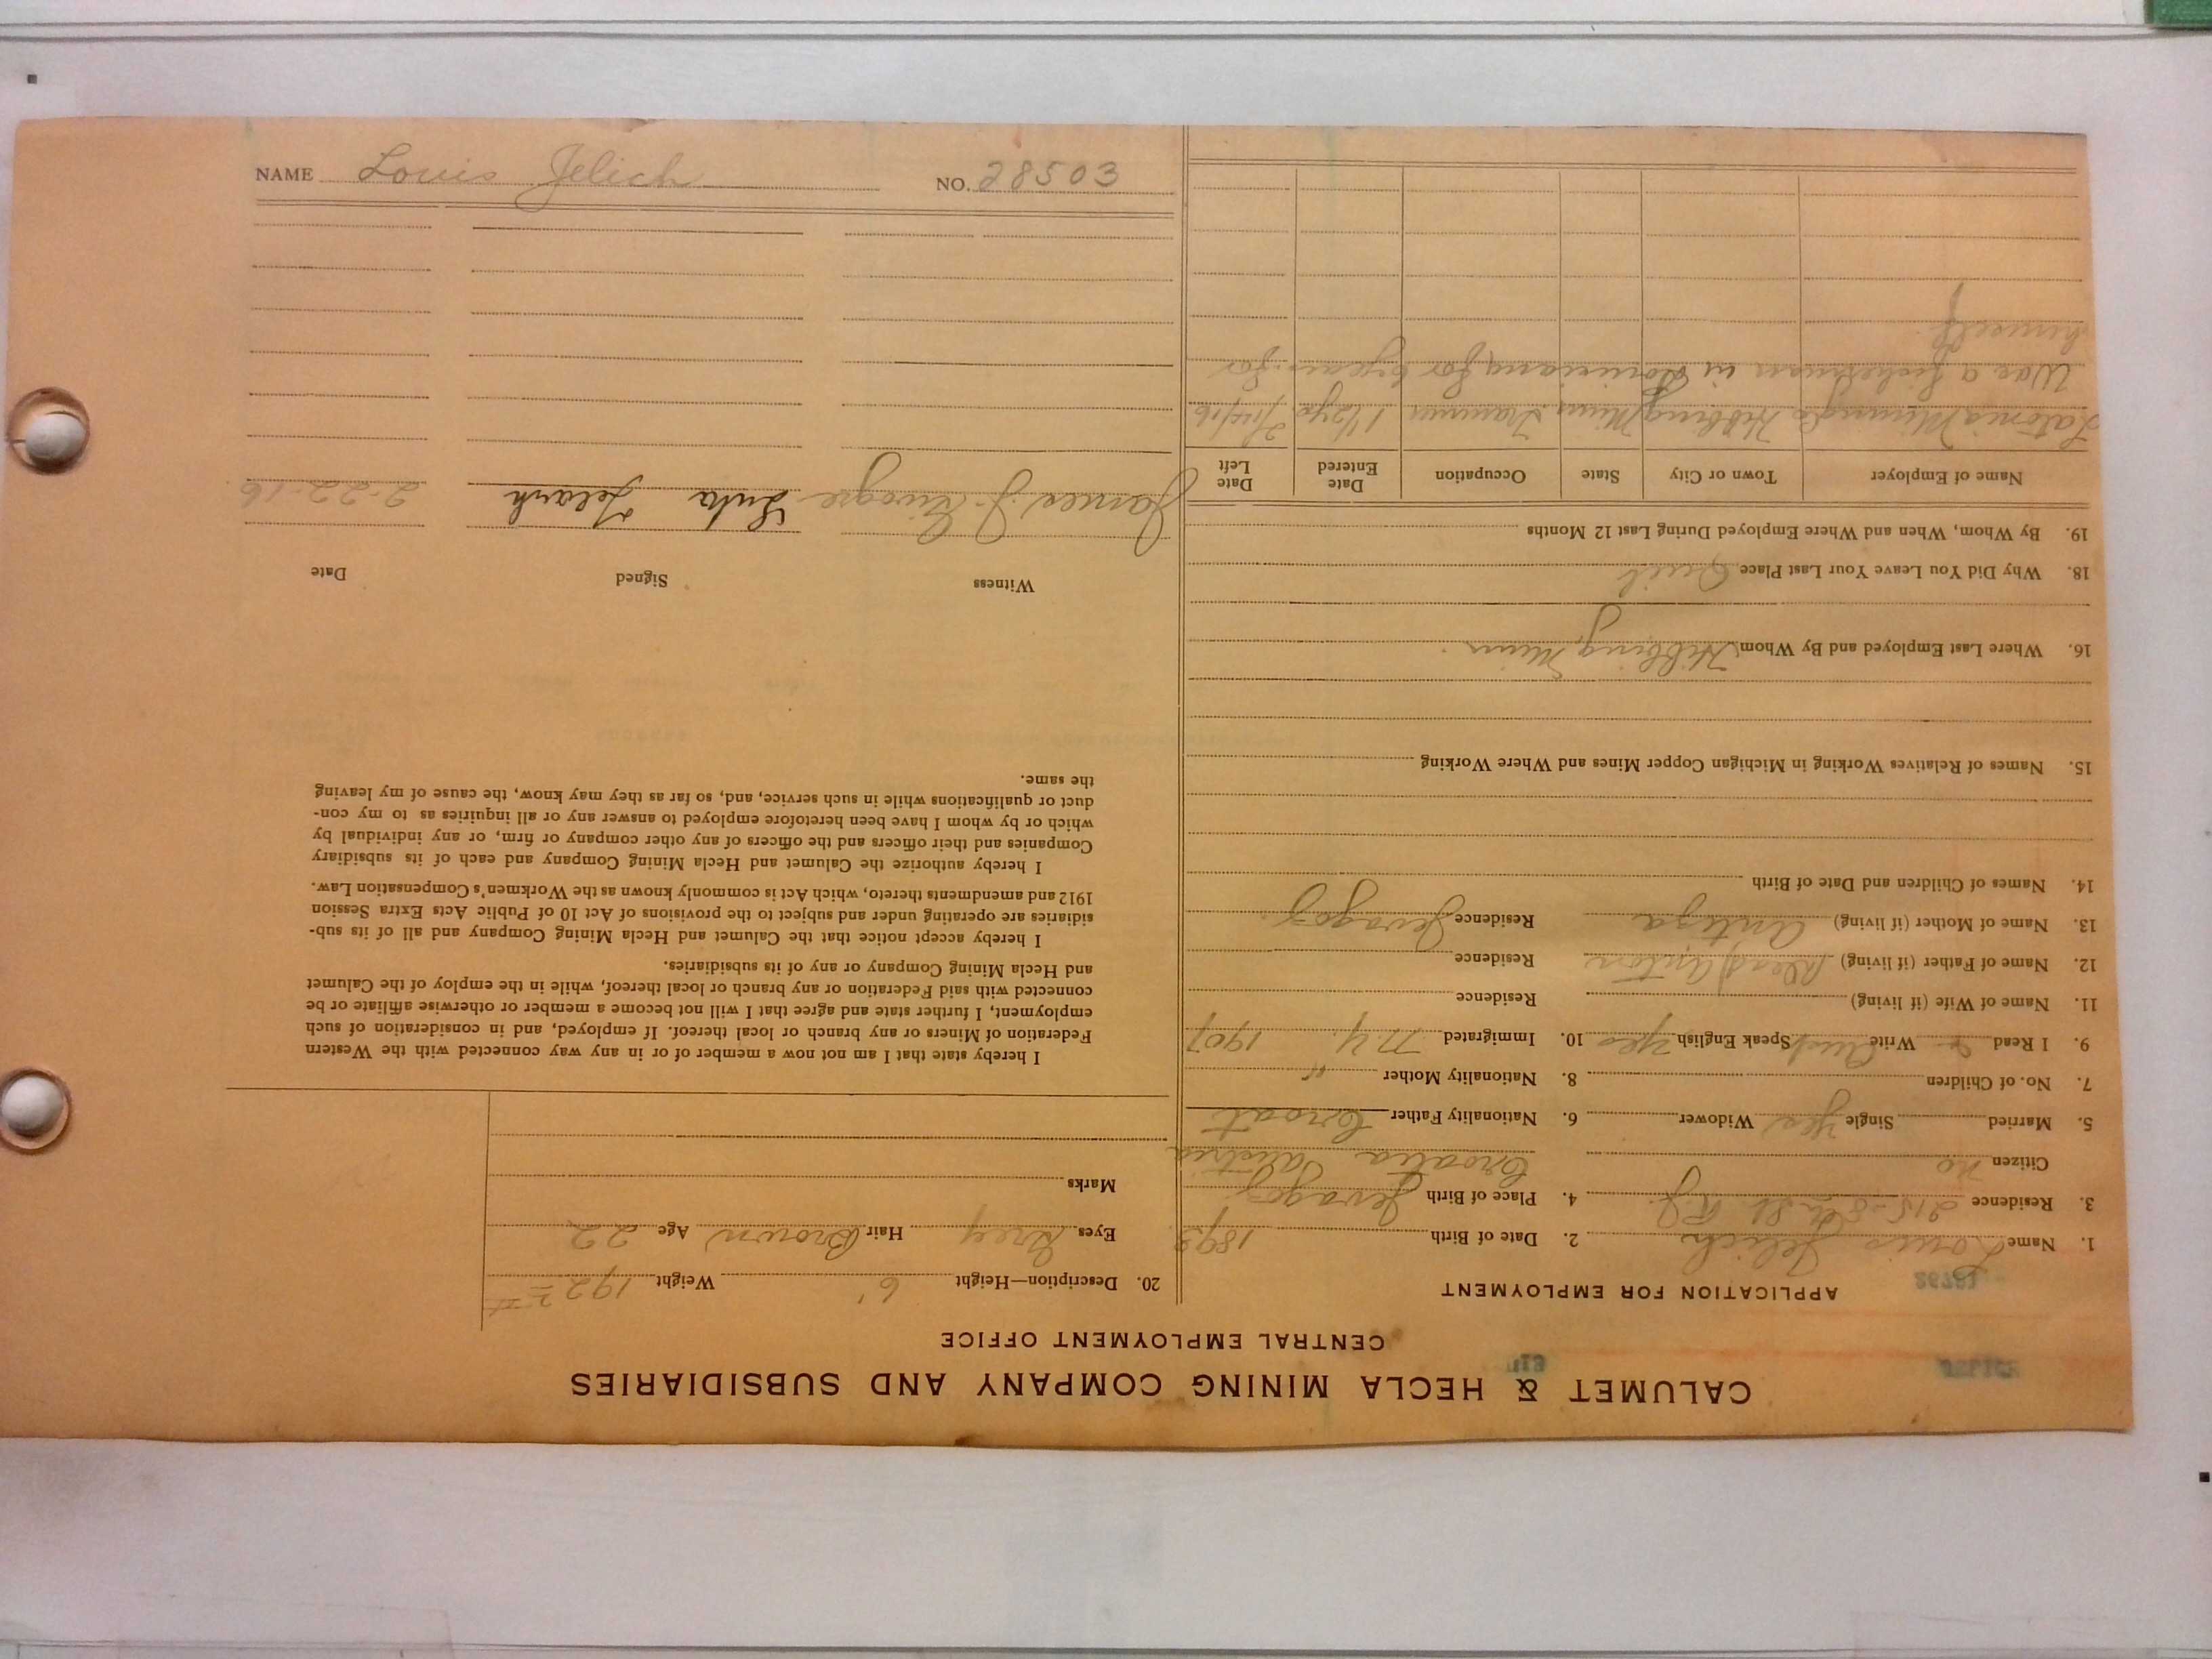 CALUMET & HECLA MINING COMPANY AND SUBSIDIARIES
CENTRAL EMPLOYMENT OFFICE
APPLICATION FOR EMPLOYMENT
1. Name Louis Jelich 2. Date of Birth 1893
3. Residence 215-8th St. R.J. 4. Place of Birth
Citizen No Croatia Austria
5. Married Single yes Widower 6. Nationality Father Croat
7. No. of Children 8. Nationality Mother "
9. I Read & Write and Speak English yes 10. Immigrated N.Y. 1907
11. Name of Wife (if living) Residence
12. Name of Father (if living) Dead Anton Residence
13. Name of Mother (if living) Residence
14. Names of Children and Date of Birth
15. Names of Relatives Working in Michigan Copper Mines and Where Working
16. Where Last Employed and By Whom Hibbing Minn
18. Why Did You Leave Your Last Place Quit
19. By Whom, When and Where Employed During Last 12 Months
Name of Employer Town or City State Occupation Date Entered Date Left
Hibbing Minn Trammer 1 1/2 yo
Was a fisherman in for 6 years for
himself
20. Description—Height 6' Weight 192
Eyes Grey Hair Brown Age 22
Marks
I hereby state that I am not now a member of or in any way connected with the Western
Federation of Miners or any branch or local thereof. If employed, and in consideration of such
employment, I further state and agree that I will not become a member or otherwise affiliate or be
connected with said Federation or any branch or local thereof, while in the employ of the Calumet
and Hecla Mining Company or any of its subsidiaries.
I hereby accept notice that the Calumet and Hecla Mining Company and all of its sub-
sidiaries are operating under and subject to the provisions of Act 10 of Public Acts Extra Session
1912 and amendments thereto, which Act is commonly known as the Workmen's Compensation Law.
I hereby authorize the Calumet and Hecla Mining Company and each of its subsidiary
Companies and their officers and the officers of any other company or firm, or any individual by
which or by whom I have been heretofore employed to answer any or all inquiries as to my con-
duct or qualifications while in such service, and, so far as they may know, the cause of my leaving
the same.
Witness Signed Date
James J. Luka 2-22-16
NAME Louis Jelich NO. 28503